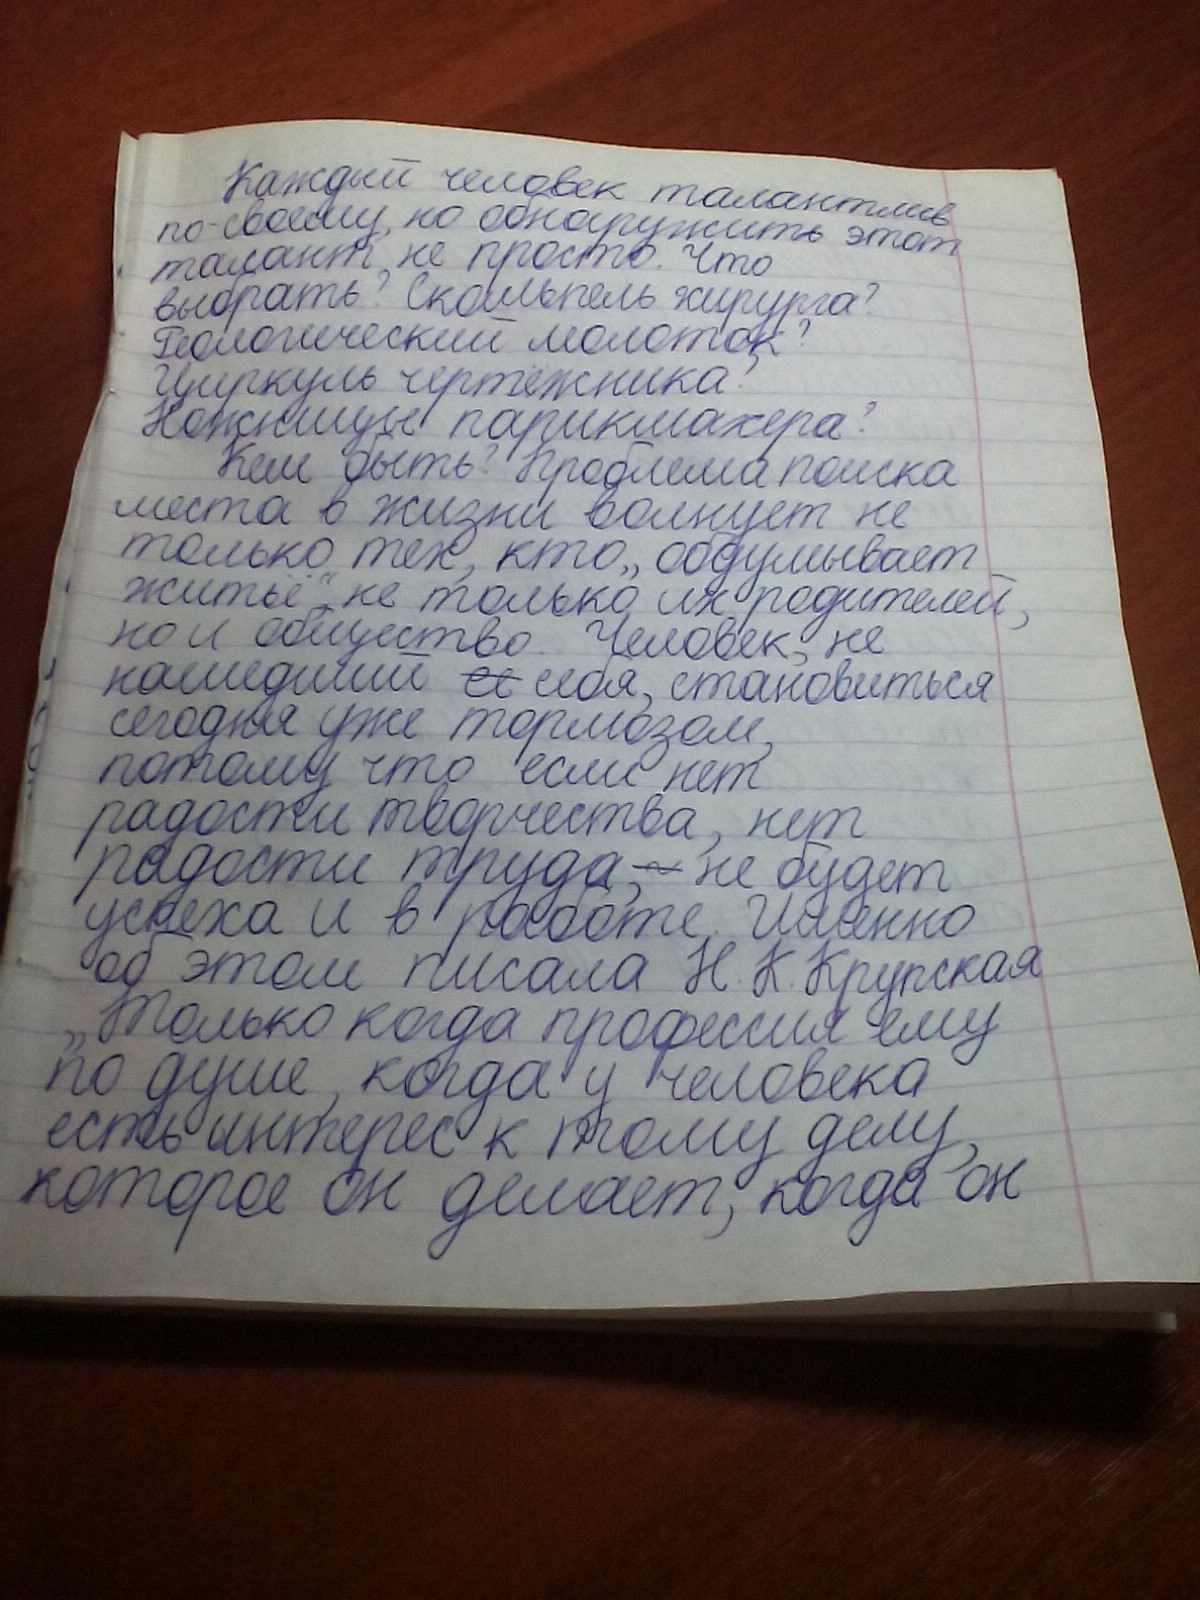 Каждый человек талантлив
по-своему, но обнаружить этот
талант не просто. Что
выбрать? Скальпель хирурга?
Геологический молоток?
Циркуль чертёжника?
Ножницы парикмахера?
Кем быть? Проблема поиска
места в жизни волнует не
только тех, кто „обдумывает
житьё“, не только их родителей,
но и общество. Человек, не
нашедший себя, становиться
сегодня уже тормозом,
потому что если нет
радости творчества, нет
радости труда, не будет
успеха и в работе. Именно
об этом писала Н.К.Крупская
„Только когда профессия ему
по душе, когда у человека
есть интерес к тому делу,
которое он делает, когда он